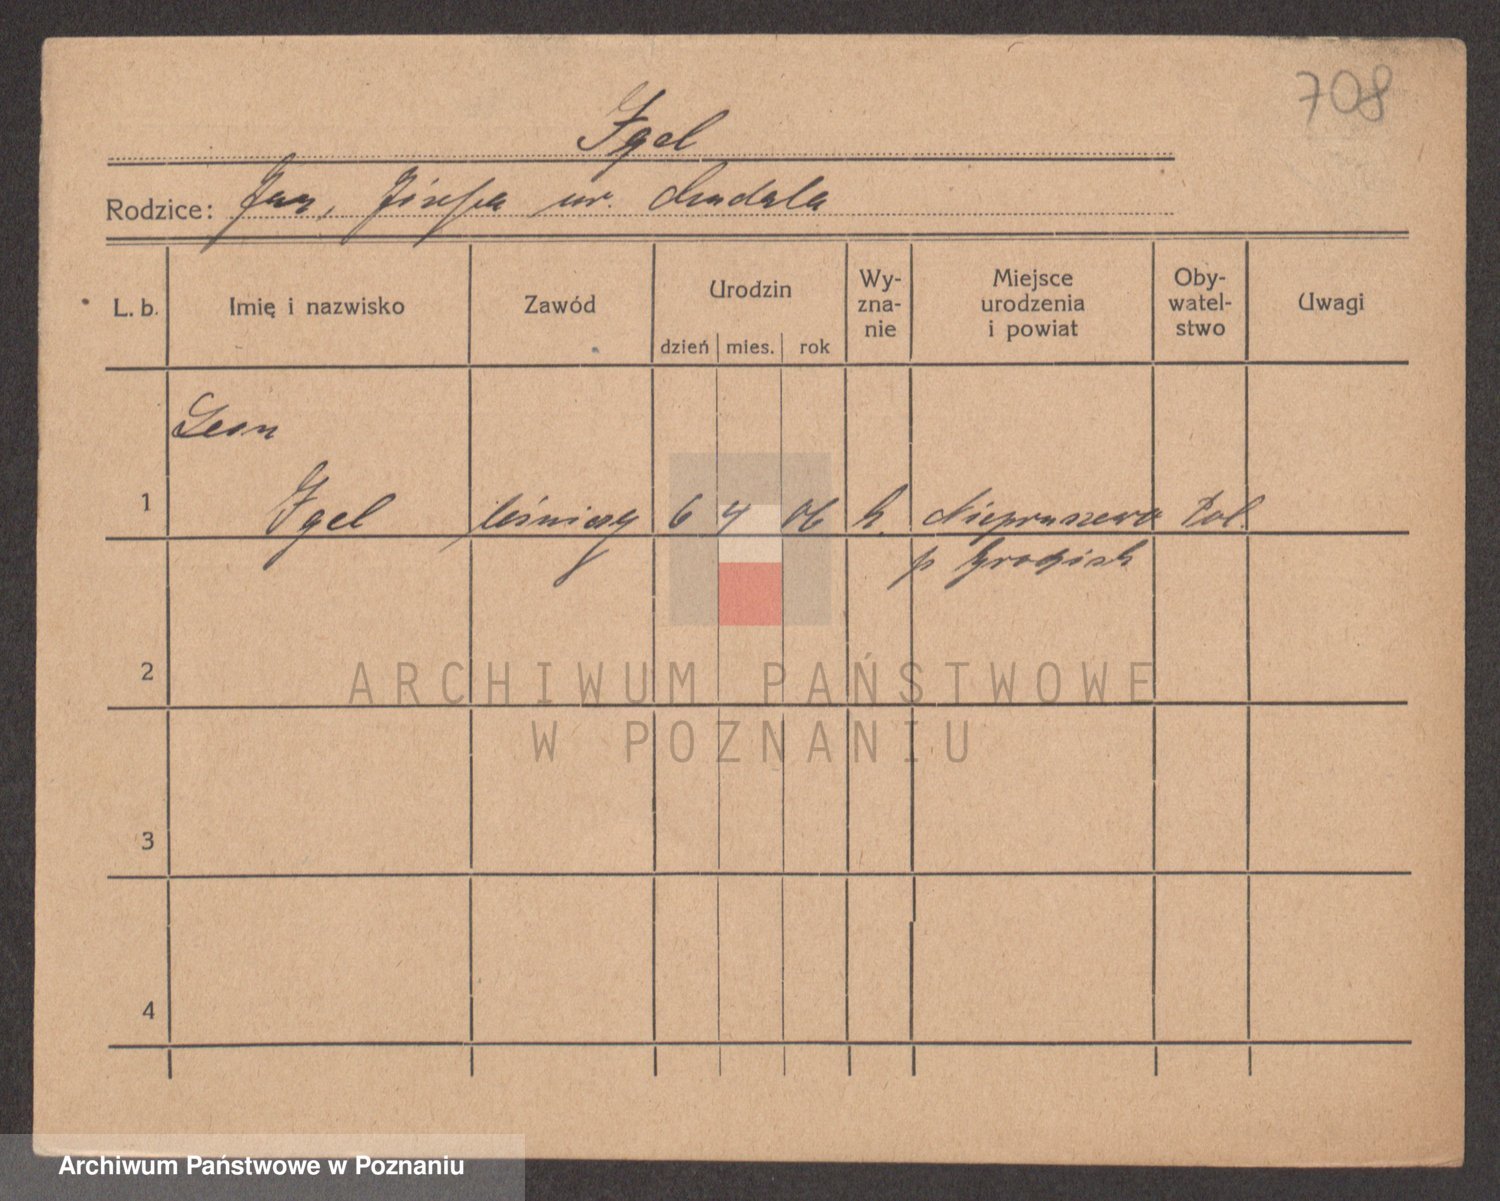 708
Igel
Rodzice: Jan, Józefa ur.
L. b. Imię i nazwisko Zawód Urodzin Wy-zna-nie Miejsce urodzenia i powiat Oby-watel-stwo Uwagi
dzień mies. rok
Leon
1 Igel leśniczy 6 4 06 k. Niepruszewo Pol.
p Grodzisk
2
3
4
ARCHIWUM PAŃSTWOWE
W POZNANIU
Archiwum Państwowe w Poznaniu